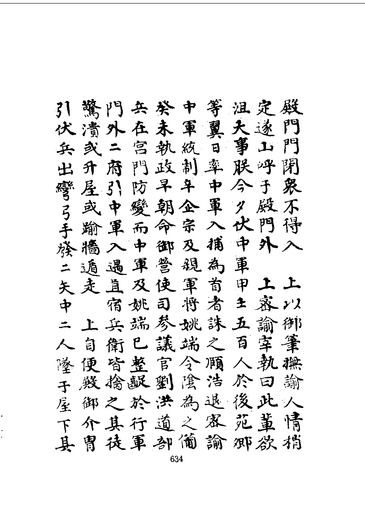 殿門門閉衆不得入　上以御筆撫諭人情稍
定遂山呼于殿門外　上密諭宰執曰此輩欲
沮大事朕今夕伏中軍甲士五百人於後苑卿
等翼日率中軍入捕為首者誅之頤浩退密諭
中軍統制辛企宗及親軍將姚端令隂為之備
癸未執政早朝命御營使司參議官劉洪道部
兵在宮門防變而中軍及姚端已整龊於行軍
門外二府引中軍入遇直宿兵衛皆擒之其徒
驚潰或升屋或踰牆遁走　上自便殿御介胄
引伏兵出彎弓手發二矢中二人墜于屋下其
634